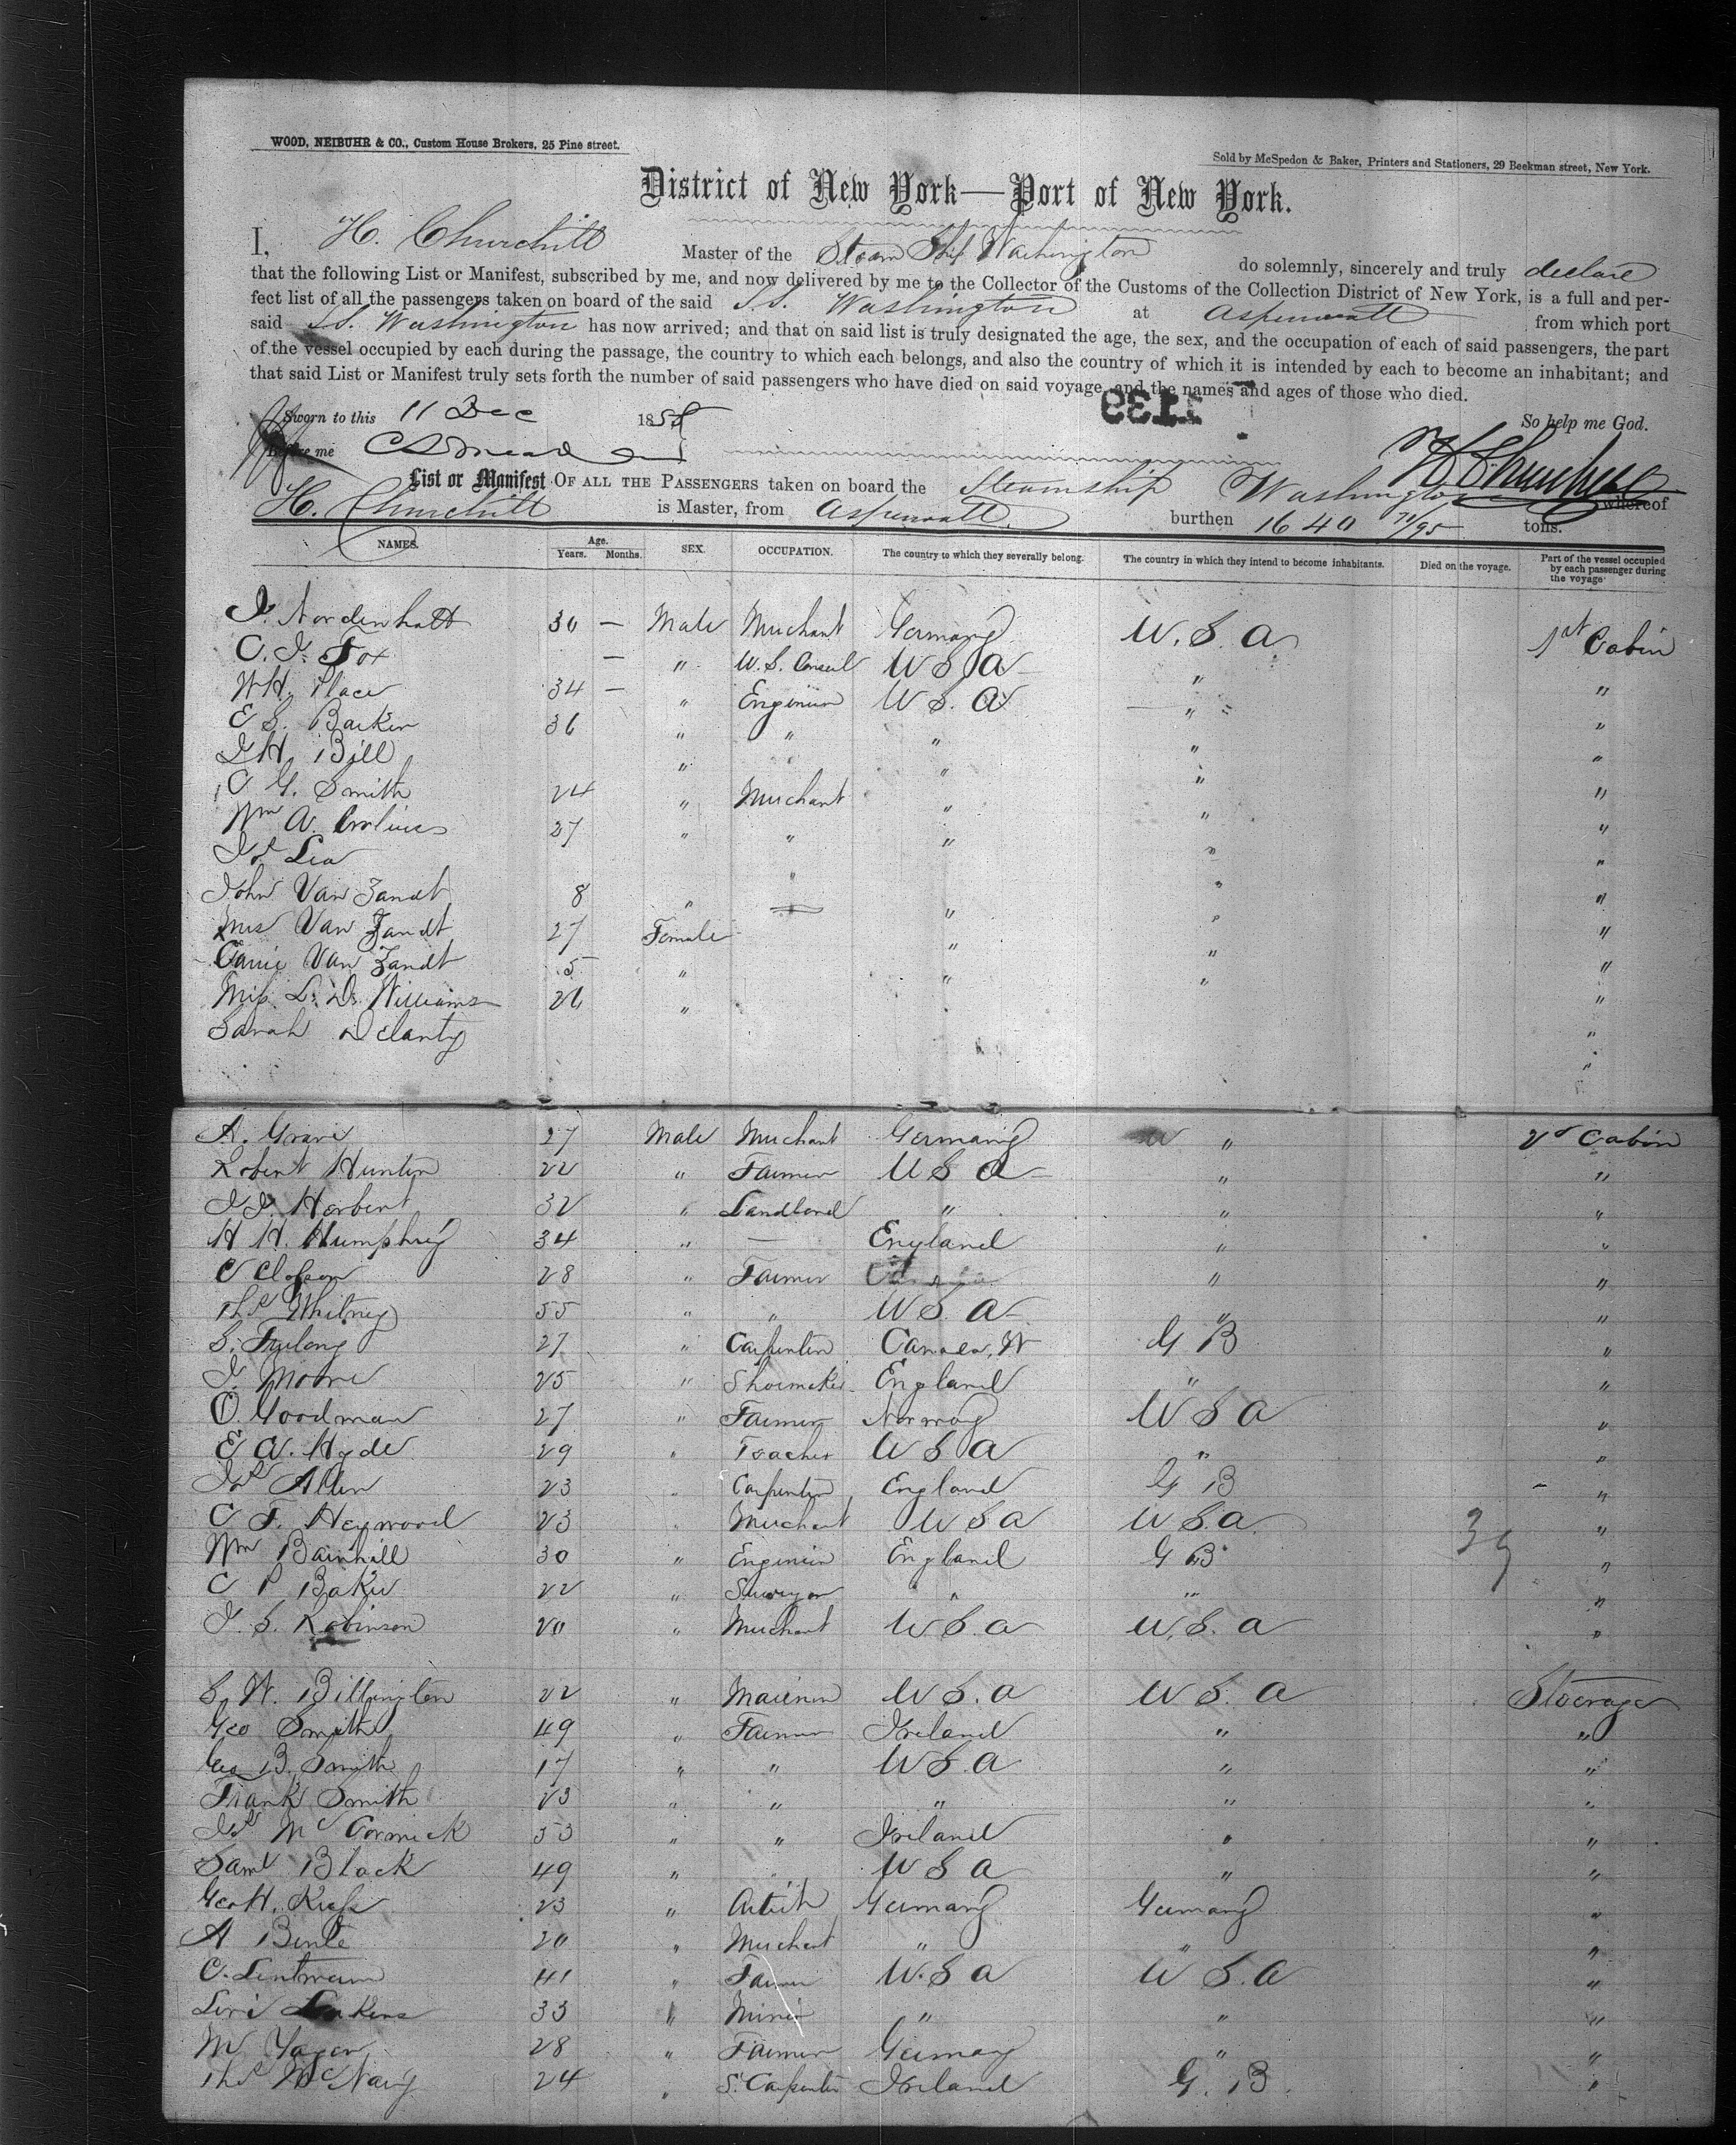 WOOD, NEIBUHR & CO., Custom House Brokers, 25 Pine street.
Sold by McSpedon & Baker, Printers and Stationers, 29 Beekman street, New York.
District of New York—Port of New York.
I, H. Churchill Master of the Steam Ship Washington do solemnly, sincerely and truly declare
that the following List or Manifest, subscribed by me, and now delivered by me to the Collector of the Customs of the Collection District of New York, is a full and per-
fect list of all the passengers taken on board of the said S.S. Washington at Aspenwall from which port
said S.S. Washington has now arrived; and that on said list is truly designated the age, the sex, and the occupation of each of said passengers, the part
of the vessel occupied by each during the passage, the country to which each belongs, and also the country of which it is intended by each to become an inhabitant; and
that said List or Manifest truly sets forth the number of said passengers who have died on said voyage, and the names and ages of those who died.
1139
Sworn to this 11 Dec 1858 So help me God.
Before me H Churchill
List or Manifest OF ALL THE PASSENGERS taken on board the Steamship Washington whereof
H. Churchill is Master, from Aspenwall burthen 1640 71/95 tons.
NAMES. Age. Years. Months. SEX. OCCUPATION. The country to which they severally belong. The country in which they intend to become inhabitants. Died on the voyage. Part of the vessel occupied by each passenger during the voyage
J. Nordenholt 30 — Male Merchant Germany U.S.A 1st Cabin
C. J. Fox — " U.S. Consul U S A " "
W H. Place 34 — " Engineer U S. A " "
E S. Barker 36 " " " " "
J H. Bill " " " " "
C G. Smith 24 " Merchant " " "
Wm A. 27 " " " " "
Jos Lea " " "
John Van Zandt 8 " — " " "
Mrs Van Zandt 27 Female " " "
Carrie Van Zandt 5 " " " "
Miss L. D. Williams 26 " "
Sarah Delanty "
A. Grave 27 Male Merchant Germany " 2d Cabin
Robert Hunter 22 " Farmer U S A " "
J J. Herbert 32 " Landlord " " "
H H. Humphrey 34 " — England " "
C Clossen 28 " Farmer " "
Ths Whitney 55 " " U S. A " "
S. Furlong 27 " Carpenter Canada, W G B "
J. Moore 25 " Shoemaker England " "
O. Goodman 27 " Farmer Norway U S A "
E A. Hyde 29 " Teacher U S A " "
Jas Allen 23 " Carpenter England G B "
C F. Heywood 23 " Merchant U S A U S.A. "
Wm Bainhill 30 " Engineer England G B "
39
C P Baker 22 " Surveyor " " "
J. S. Robinson 20 " Merchant U.S.A U.S. A "
S. W. Billington 22 " Mariner U S. A U S. A Steerage
Geo Smith 49 " Farmer Ireland " "
Geo B. Smith 17 " " U S A " "
Frank Smith 23 " " " " "
Jas McCormick 53 " " Ireland " "
Saml Black 49 " U S A " "
Geo H. Kress 23 " Artist Germany Germany "
A Bente 20 " Merchant " " "
C. Lentmann 41 " Farmer U. S A U S.A "
Levi 33 " Miner " " "
M Yager 28 " Farmer Germany " "
Ths McNary 24 " S. Carpenter Ireland G. B. "